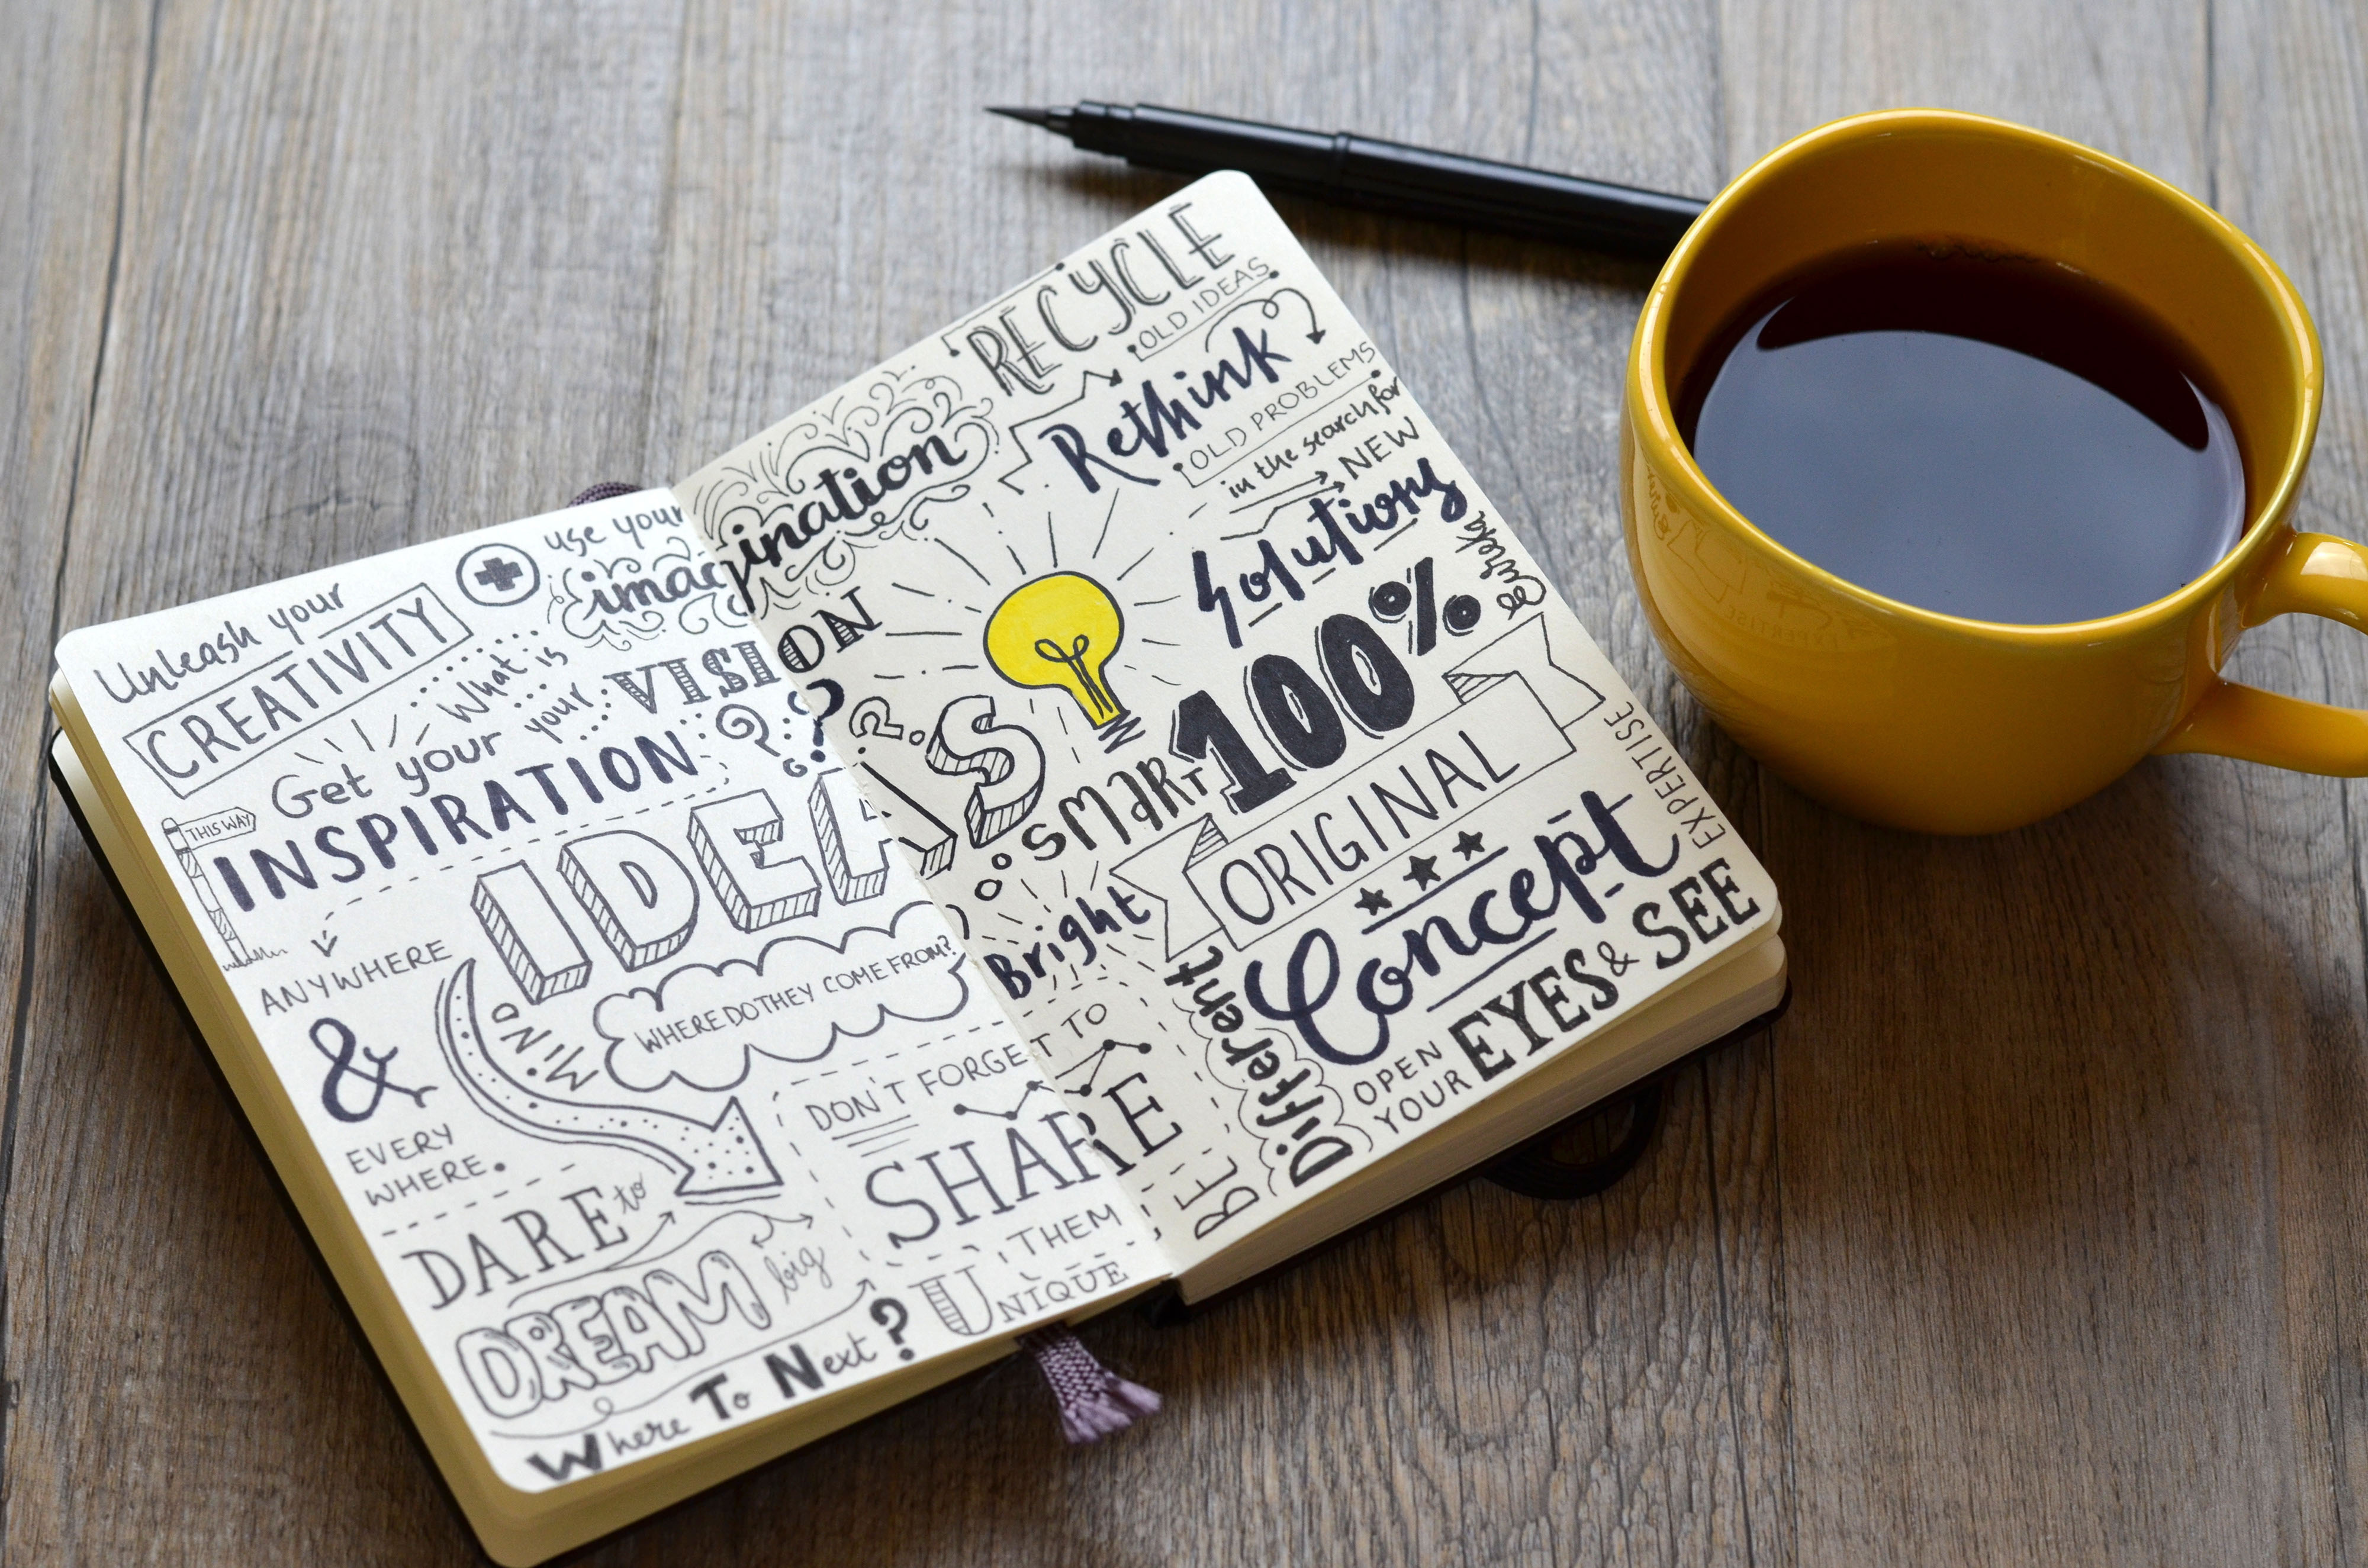 Unleash your
CREATIVITY
use your
imagination
What is
your
VISION
??
Get your
INSPIRATION
THIS WAY
ANYWHERE
&
EVERY
WHERE.
IDEAS
MiND
WHERE DO THEY COME FROM?
DON'T FORGET TO
SHARE
THEM
DARE to
DREAM big
Where To Next?
UNIQUE
RECYCLE
OLD IDEAS
Rethink
OLD PROBLEMS
in the search for
NEW
Solutions
Eureka
?
SMART
100%
ORIGINAL
Bright
Concept
EXPERTISE
BE
Different
OPEN
YOUR
EYES & SEE